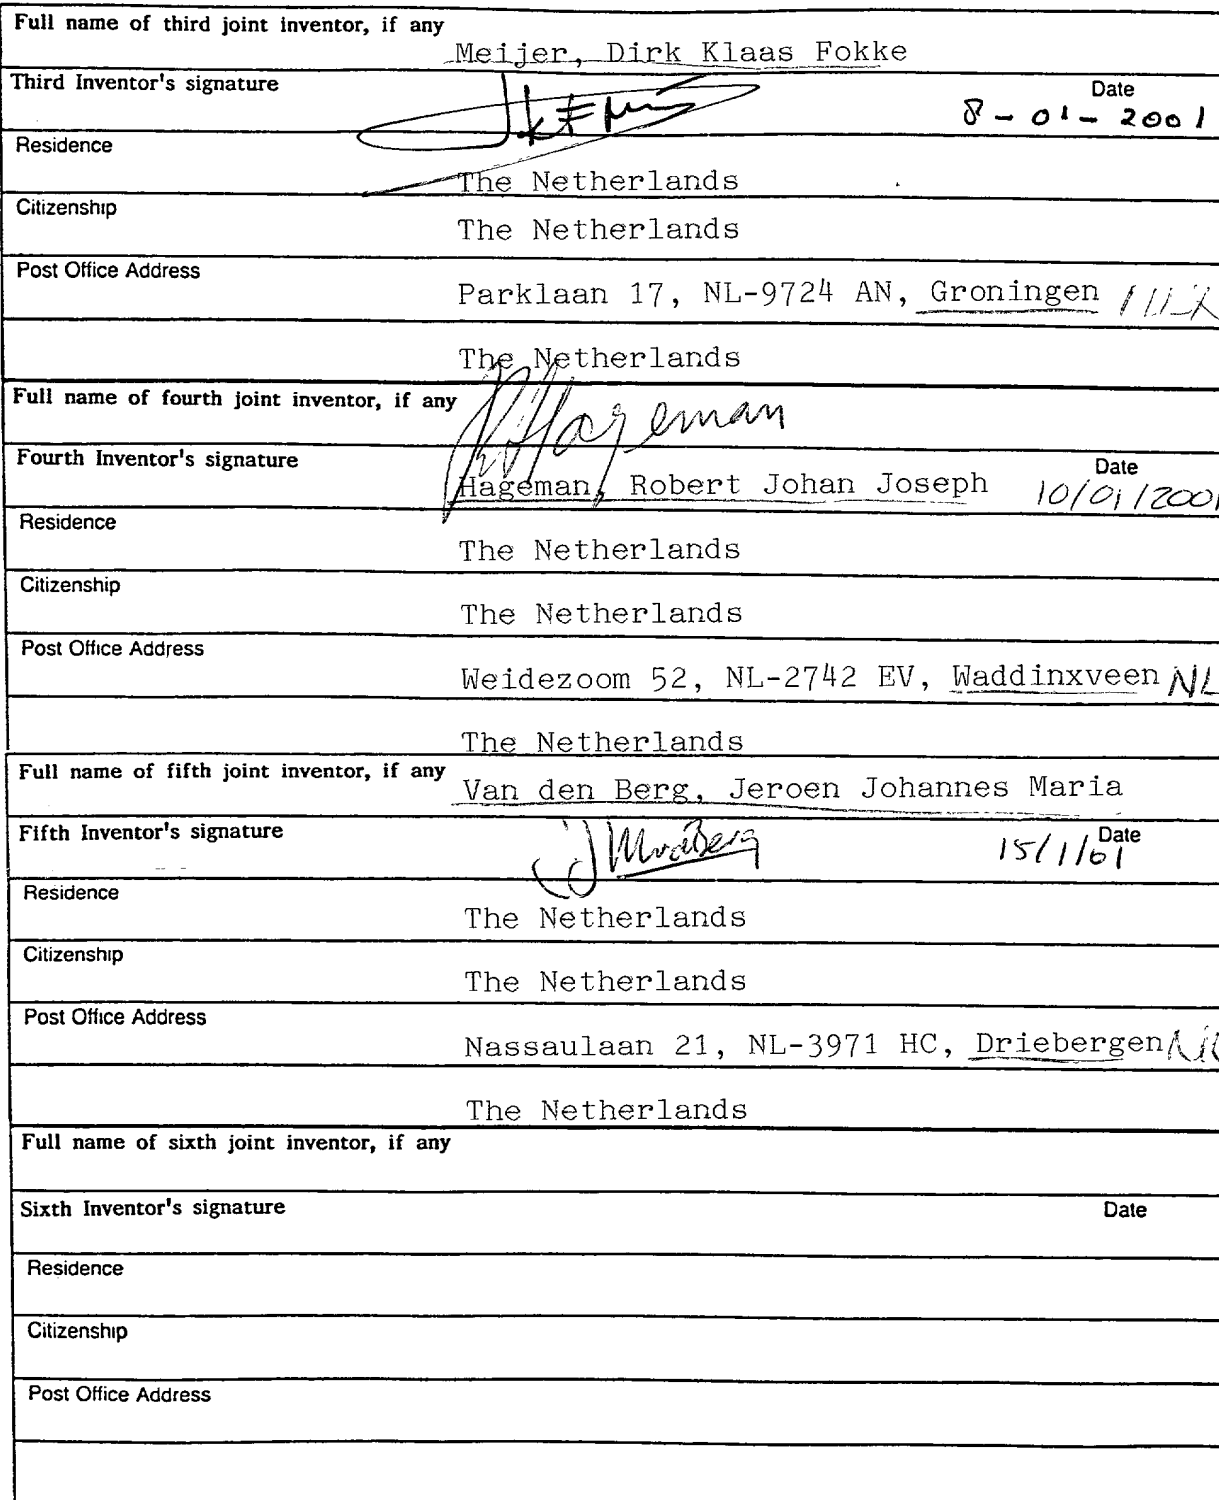 Full name of third joint inventor, if any
Meijer, Dirk Klaas Fokke
Third Inventor's signature
Date
8-01-2001
Residence
The Netherlands
Citizenship
The Netherlands
Post Office Address
Parklaan 17, NL-9724 AN, Groningen
The Netherlands
Full name of fourth joint inventor, if any
Hageman
Fourth Inventor's signature
Hageman, Robert Johan Joseph
Date
10/01/2001
Residence
The Netherlands
Citizenship
The Netherlands
Post Office Address
Weidezoom 52, NL-2742 EV, Waddinxveen NL
The Netherlands
Full name of fifth joint inventor, if any
Van den Berg, Jeroen Johannes Maria
Fifth Inventor's signature
Date
15/1/01
Residence
The Netherlands
Citizenship
The Netherlands
Post Office Address
Nassaulaan 21, NL-3971 HC, Driebergen
The Netherlands
Full name of sixth joint inventor, if any
Sixth Inventor's signature
Date
Residence
Citizenship
Post Office Address